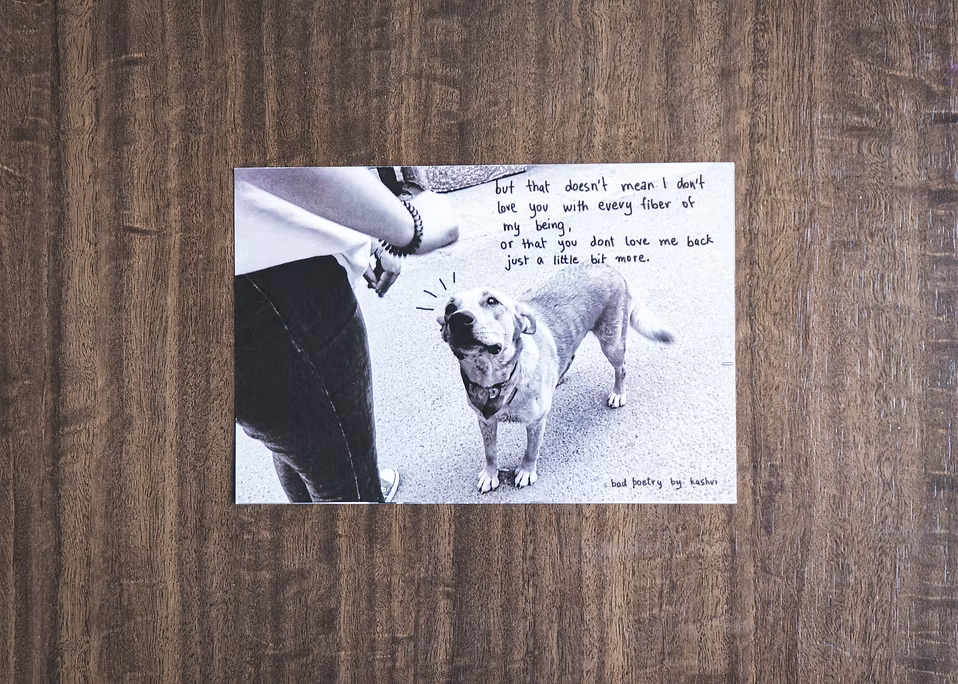 but that doesn't mean I don't
love you with every fiber of
my being,
or that you dont love me back
just a little bit more.
bad poetry by kashvi